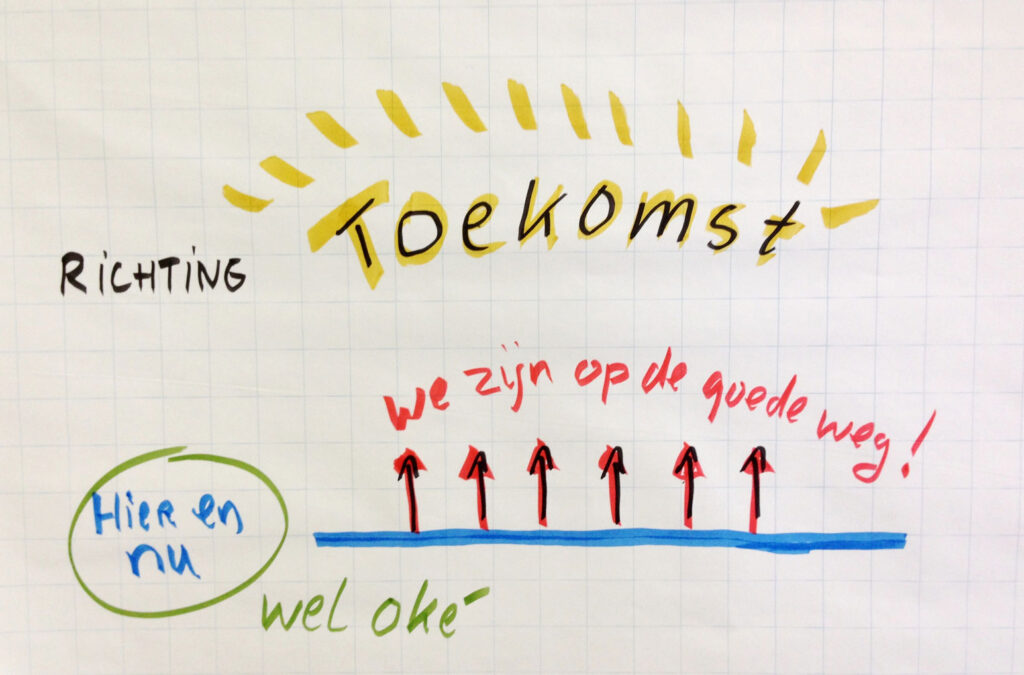 Toekomst
RICHTING
we zijn op de goede weg!
Hier en
nu
wel oké